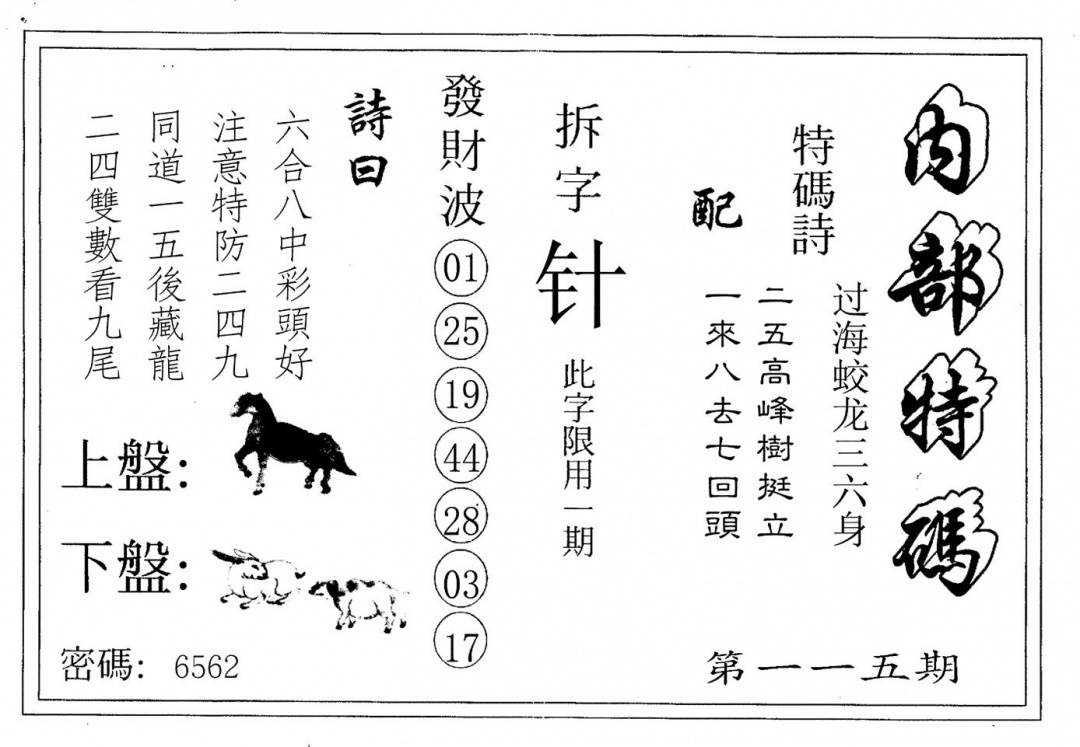 内部特碼
特碼詩
过海蛟龙三六身
配
二五高峰樹挺立
一來八去七回頭
第一一五期
拆字
针
此字限用一期
發財波
01
25
19
44
28
03
17
詩曰
六合八中彩頭好
注意特防二四九
同道一五後藏龍
二四雙數看九尾
上盤：
下盤：
密碼：6562